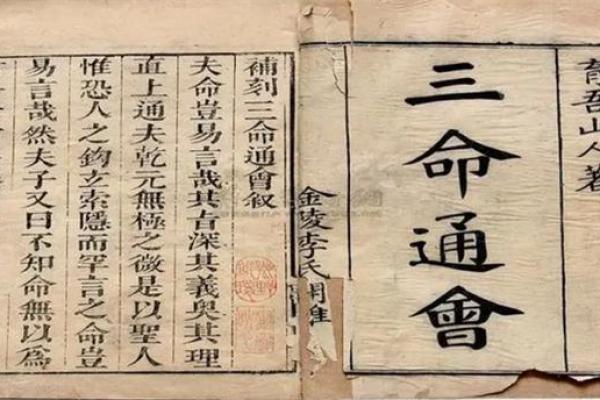 育吾山人著
三命通會
金陵李氏
補刻三命通會叙
夫命豈易言哉其旨深其義奧其理
直上通夫乾元無極之微是以聖人
惟恐人之鈎玄索隱而罕言之命豈
易言哉然夫子又曰不知命無以為